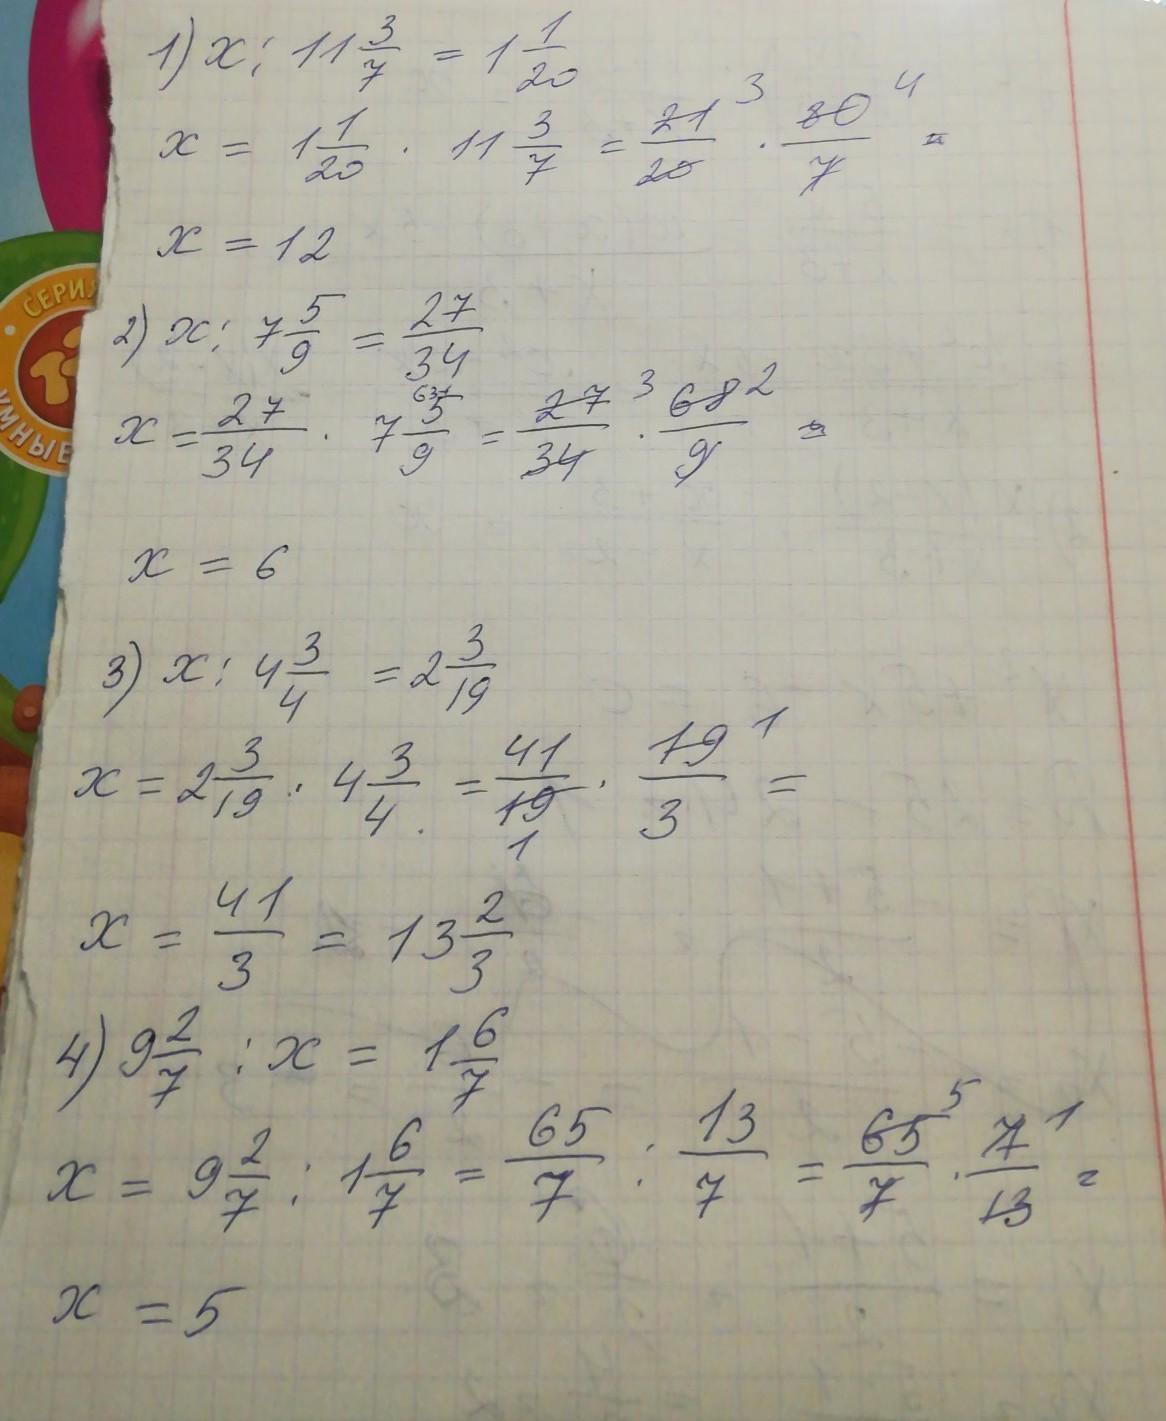 1) x : 11 3/7 = 1 1/20
x = 1 1/20 · 11 3/7 = 21/20 3 · 80/7 4 =
x = 12
2) x : 7 5/9 = 27/34
x = 27/34 · 7 5/9 = 27/34 3 · 68/9 2 =
x = 6
3) x : 4 3/4 = 2 3/19
x = 2 3/19 · 4 3/4 = 41/19 1 · 19/3 1 =
x = 41/3 = 13 2/3
4) 9 2/7 : x = 1 6/7
x = 9 2/7 : 1 6/7 = 65/7 : 13/7 = 65/7 5 · 7/13 1 =
x = 5
СЕРИЯ
УМНЫЕ